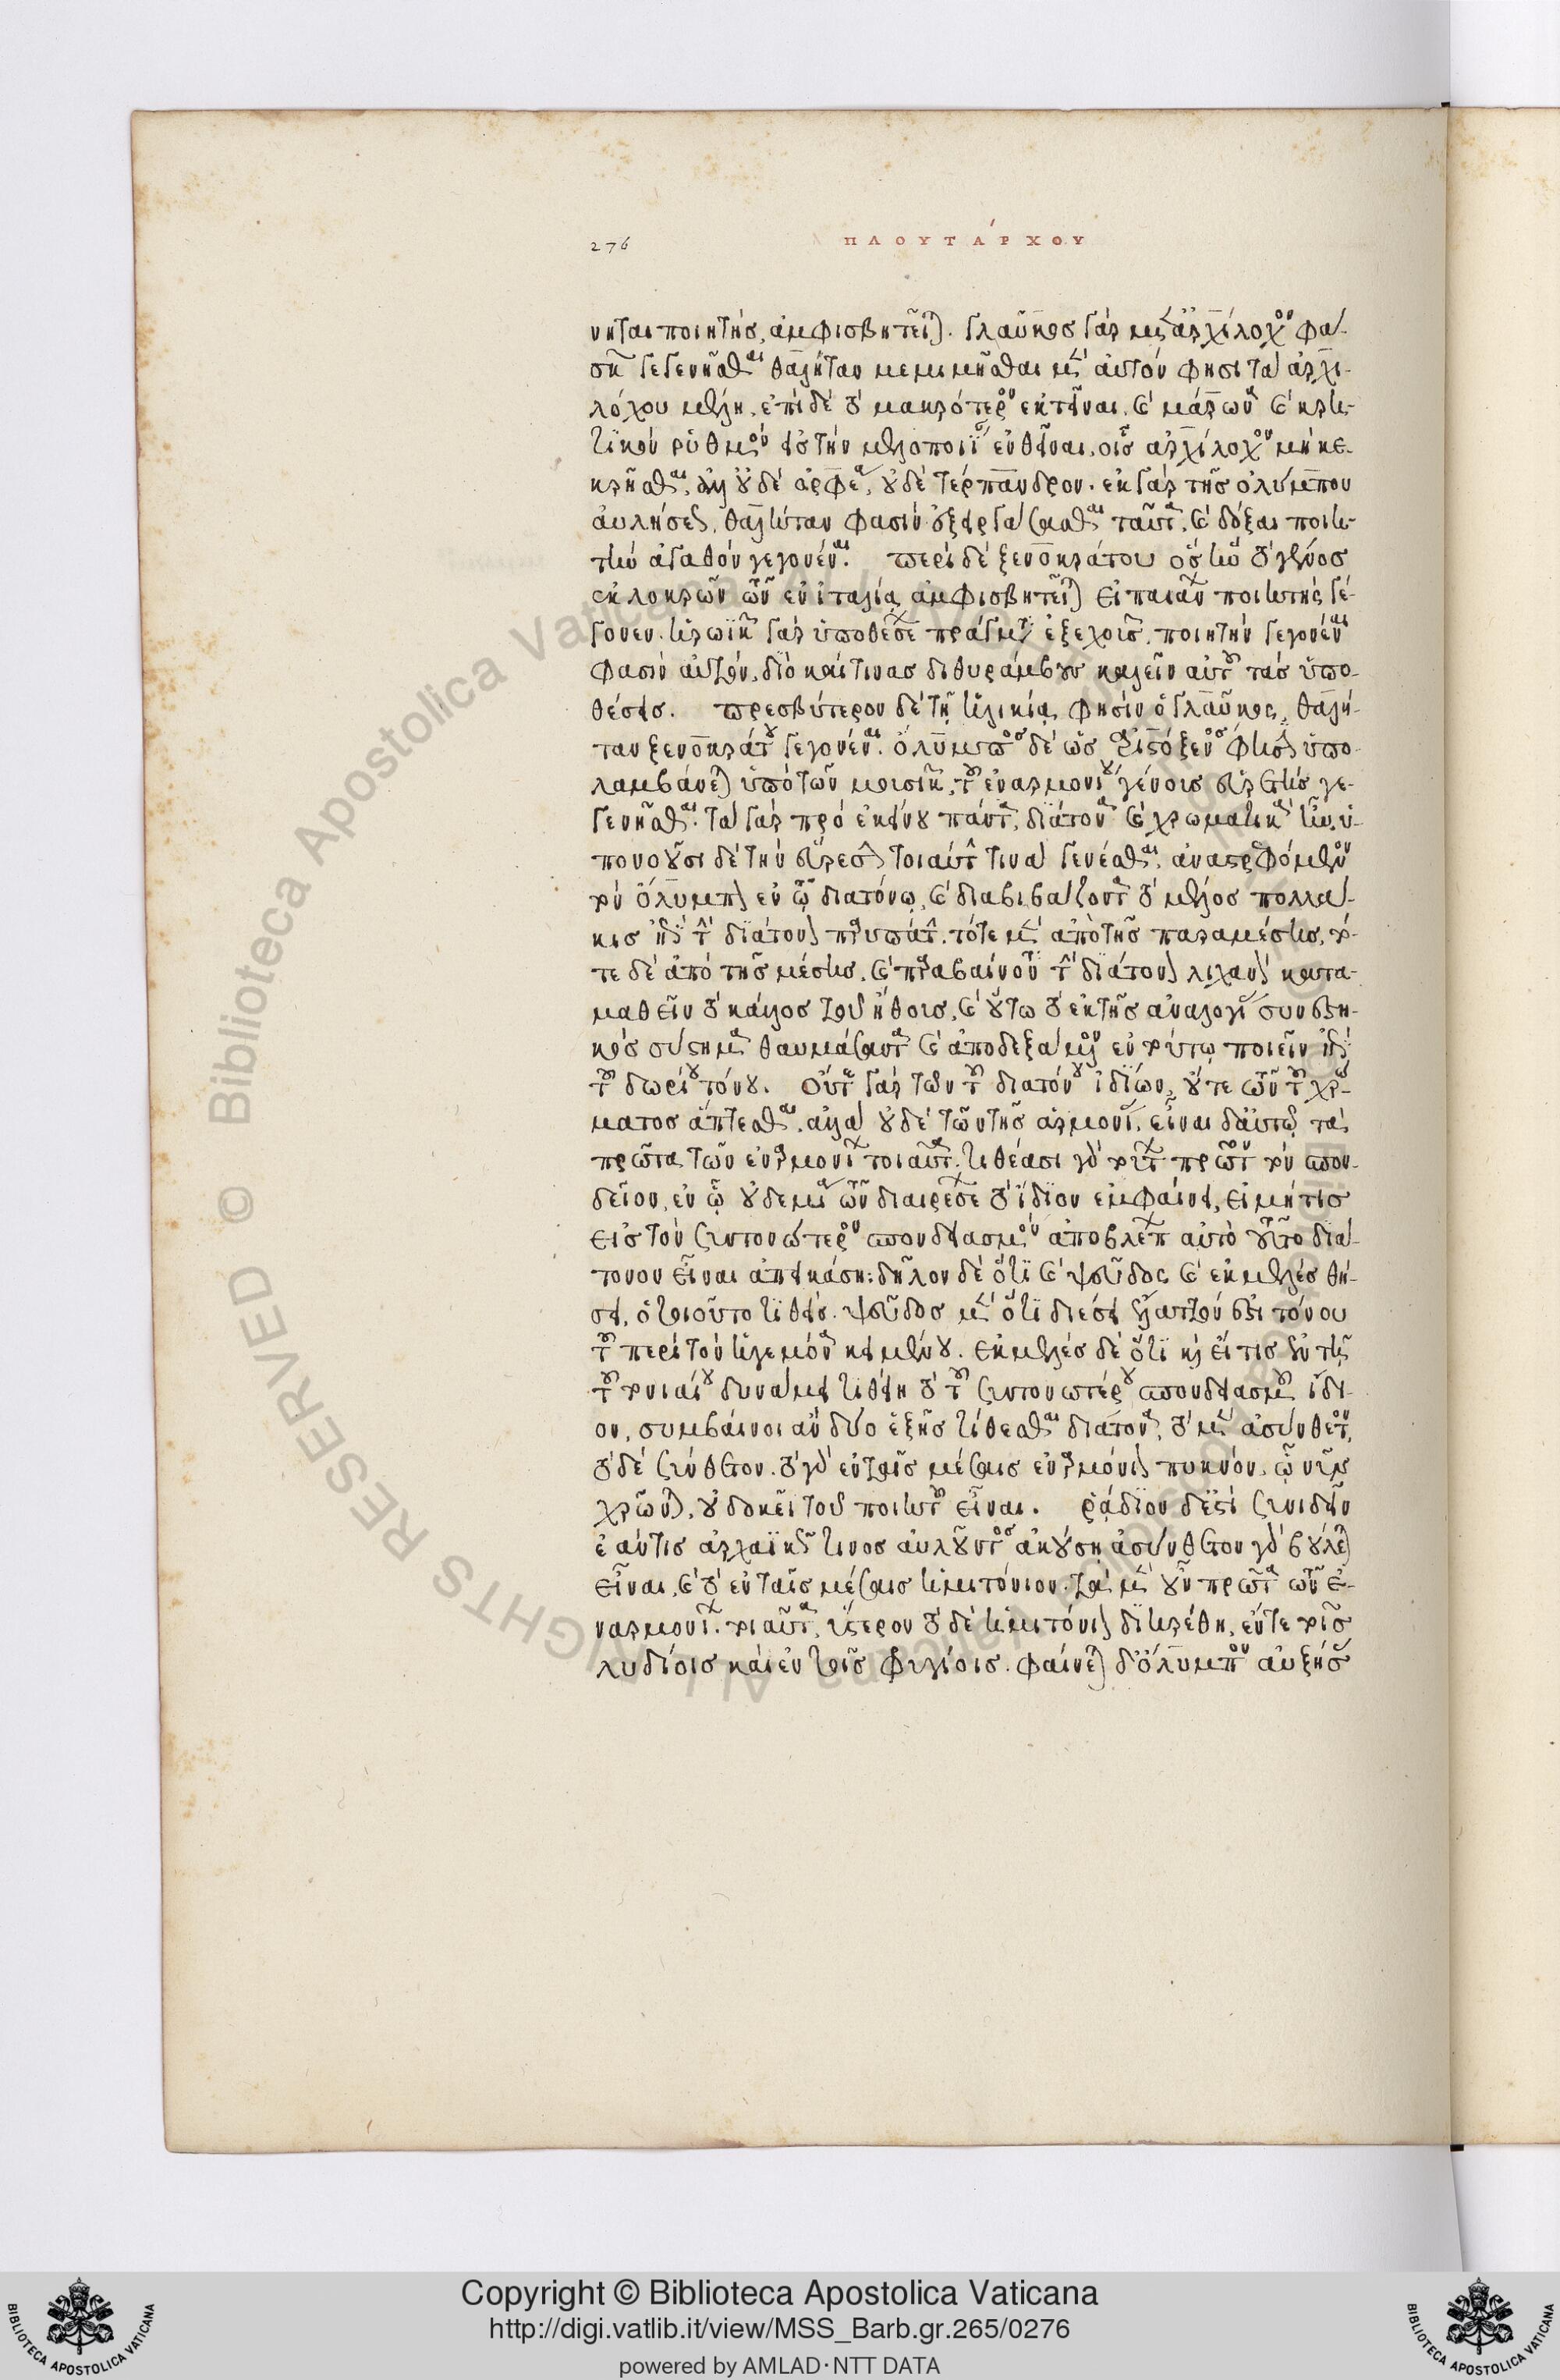 276 ΠΛΟΥΤΆΡΧΟΥ
νηται ποιητής, ἀμφισβητεῖται. Γλαῦκος γὰρ μετ' ἀρχίλοχον φά-
σκων γεγενῆσθαι θαλήταν μεμιμῆσθαι μὲν αὐτόν φησι τὰ ἀρχι-
λόχου μέλη, ἐπὶ δὲ τὸ μακρότερον ἐκτεῖναι, καὶ μάρωνα καὶ κρη-
τικὸν ῥυθμὸν εἰς τὴν μελοποιίαν ἐνθεῖναι, οἷς ἀρχίλοχον μὴ κε-
χρῆσθαι, ἀλλ' οὐδὲ ὀρφέα, οὐδὲ τέρπανδρον. ἐκ γὰρ τῆς ὀλύμπου
αὐλήσεως, θαλήταν φασὶν ἐξειργάσθαι ταῦτα, καὶ δόξαι ποιη-
τὴν ἀγαθὸν γεγονέναι. περὶ δὲ ξενοκράτου ὃς ἦν τὸ γένος
ἐκ λοκρῶν τῶν ἐν ἰταλίᾳ ἀμφισβητεῖται εἰ παιάνων ποιητὴς γέ-
γονεν. ἡρωϊκῶν γὰρ ὑποθέσεων πράγματα ἐχουσῶν, ποιητὴν γεγονέναι
φασὶν αὐτόν, διὸ καί τινας διθυράμβους καλεῖν αὐτοῦ τὰς ὑπο-
θέσεις. πρεσβύτερον δὲ τῇ ἡλικίᾳ φησὶν ὁ γλαῦκος, θαλή-
ταν ξενοκράτου γεγονέναι. ὄλυμπος δὲ ὡς ἀριστόξενος φησὶν ὑπο-
λαμβάνεται ὑπὸ τῶν μουσικῶν, τοῦ ἐναρμονίου γένους εὑρετὴς γε-
γενῆσθαι. τὰ γὰρ πρὸ ἐκείνου πάντα, διάτονα καὶ χρωματικὰ ἦν. ὑ-
πονοοῦσι δὲ τὴν εὕρεσιν τοιαύτην τινὰ γενέσθαι. ἀναστρεφόμενον
τὸν ὄλυμπον ἐν τῷ διατόνῳ, καὶ διαβιβάζοντα τὸ μέλος πολλά-
κις ἐπὶ τὴν διάτονον παρυπάτην, τότε μὲν ἀπὸ τῆς παραμέσης, τό-
τε δὲ ἀπὸ τῆς μέσης, καὶ παραβαίνοντα τὴν διάτονον λιχανὸν κατα-
μαθεῖν τὸ κάλλος τοῦ ἤθους, καὶ οὕτω τὸ ἐκ τῆς ἀναλογίας συνεστη-
κὸς σύστημα θαυμάσαντα καὶ ἀποδεξάμενον ἐν τούτῳ ποιεῖν ἐπὶ
τοῦ δωρίου τόνου. οὔτε γὰρ τῶν τοῦ διατόνου ἰδίων, οὔτε τῶν τοῦ χρώ-
ματος ἅπτεσθαι, ἀλλὰ οὐδὲ τῶν τῆς ἁρμονίας. εἶναι δ' αὐτῷ τὰ
πρῶτα τῶν ἐναρμονίων τοιαῦτα. τιθέασι γὰρ τούτων πρῶτον τὸν σπον-
δεῖον, ἐν ᾧ οὐδεμία τῶν διαιρέσεων τὸ ἴδιον ἐμφαίνει, εἰ μή τις
εἰς τὸν συντονώτερον σπονδειασμὸν ἀποβλέπων αὐτὸ τοῦτο διά-
τονον εἶναι ἀπεικάσῃ: δῆλον δὲ ὅτι καὶ ψεῦδος καὶ ἐκμελὲς θή-
σει, ὁ τοιοῦτο τιθείς. ψεῦδος μὲν ὅτι διέσει ἔλαττόν ἐστι τόνου
τοῦ περὶ τὸν ἡγεμόνα κειμένου. ἐκμελὲς δὲ ὅτι καὶ εἴ τις ἐν τῇ
τοῦ τονιαίου δυνάμει τιθείη τὸ τοῦ συντονωτέρου σπονδειασμοῦ ἴδι-
ον, συμβαίνοι ἂν δύο ἑξῆς τίθεσθαι διάτονα, τὸ μὲν ἀσύνθετον,
τὸ δὲ σύνθετον. τὸ γὰρ ἐν ταῖς μέσαις ἐναρμόνιον πυκνόν, ᾧ νῦν
χρῶνται, οὐ δοκεῖ τοῦ ποιητοῦ εἶναι. ῥᾴδιον δ' ἐστὶ συνιδεῖν
ἐάν τις ἀρχαϊκῶς τινος αὐλοῦντος ἀκούσῃ ἀσύνθετον γὰρ βούλεται
εἶναι, καὶ τὸ ἐν ταῖς μέσαις ἡμιτόνιον. τὰ μὲν οὖν πρῶτα τῶν ἐ-
ναρμονίων τοιαῦτα, ὕστερον τὸ δὲ ἡμιτόνιον διῃρέθη, ἔν τε τοῖς
λυδίοις καὶ ἐν τοῖς φρυγίοις. φαίνεται δ' ὄλυμπον αὐξήσας
Copyright © Biblioteca Apostolica Vaticana
http://digi.vatlib.it/view/MSS_Barb.gr.265/0276
powered by AMLAD·NTT DATA